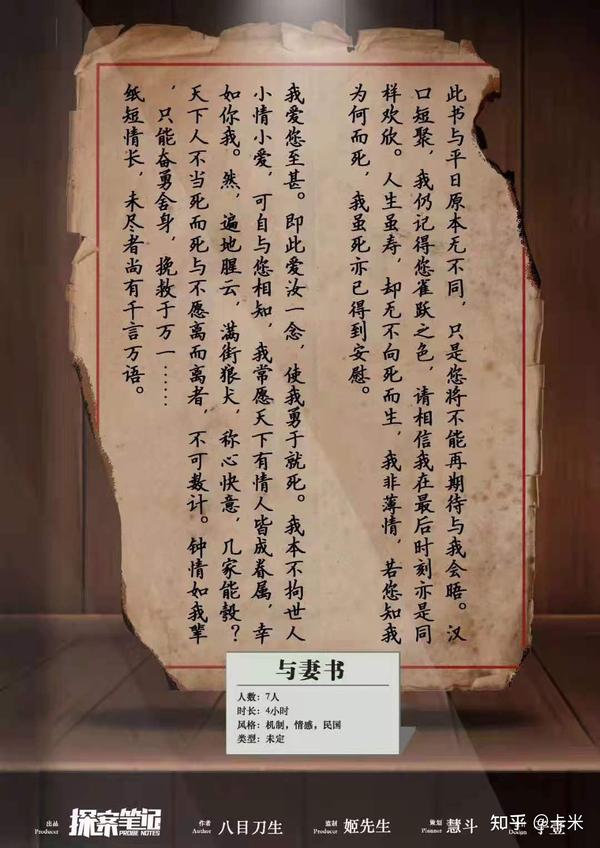 此书与平日原本无不同，只是您将不能再期待与我会晤。汉
口短聚，我仍记得您雀跃之色，请相信我在最后时刻亦是同
样欢欣。人生虽寿，却无不向死而生，我非薄情，若您知我
为何而死，我虽死亦已得到安慰。
我爱您至甚。即此爱汝一念，使我勇于就死。我本不拘世人
小情小爱，可自与您相知，我常愿天下有情人皆成眷属，幸
如你我。然，遍地腥云，满街狼犬，称心快意，几家能彀？
天下人不当死而死与不愿离而离者，不可数计。钟情如我辈
，只能奋勇舍身，挽救于万一……
纸短情长，未尽者尚有千言万语。
与妻书
人数：7人
时长：4小时
风格：机制，情感，民国
类型：未定
出品 Producer 探案笔记 PROBE NOTES 作者 Author 八目刀生 监制 Producer 姬先生 策划 Planner 慧斗 Design
知乎 @卡米